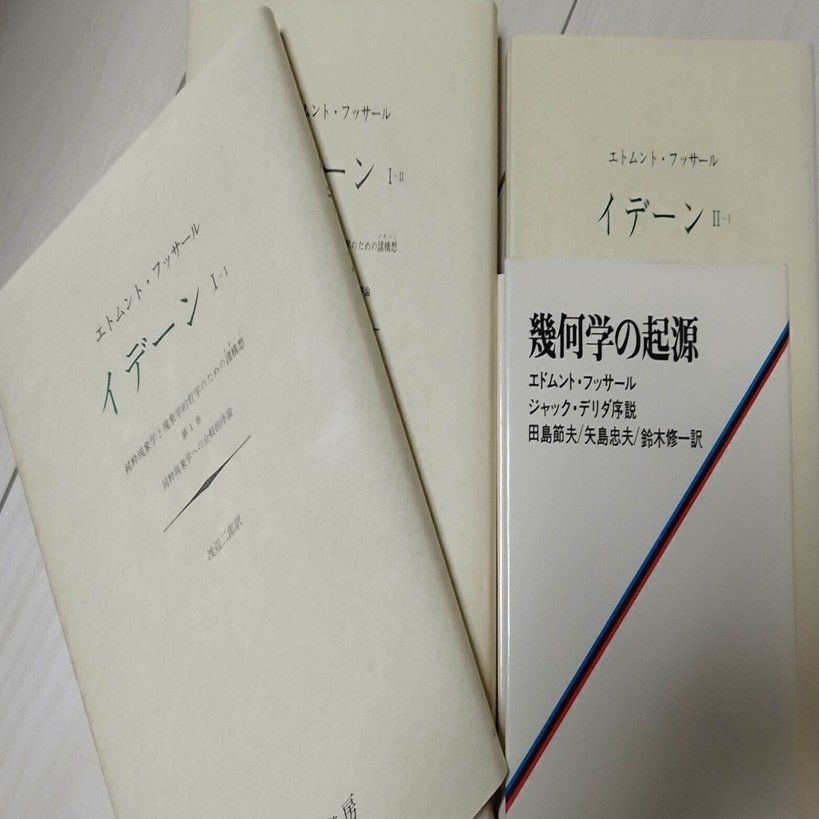 エトムント・フッサール
イデーン I-I
純粋現象学と現象学的哲学のための諸構想
イデーン
第1巻
純粋現象学への全般的序論
渡辺二郎訳
房
ント・フッサール
ーン I-II
のための諸構想
イデーン
論
エトムント・フッサール
イデーン II-I
幾何学の起源
エドムント・フッサール
ジャック・デリダ序説
田島節夫/矢島忠夫/鈴木修一訳